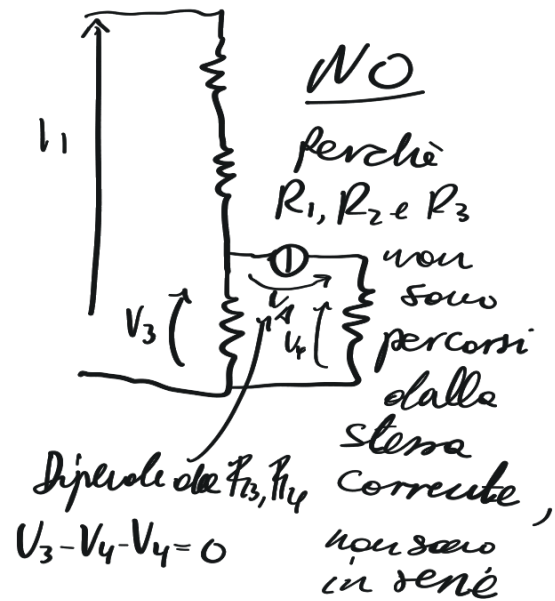 NO
perchè
R1, R2 e R3
non
sono
percorsi
dalla
stessa
corrente,
non sono
in serie
V1
V3
VA
V4
Dipende da R3, R4
V3-V4-V4=0